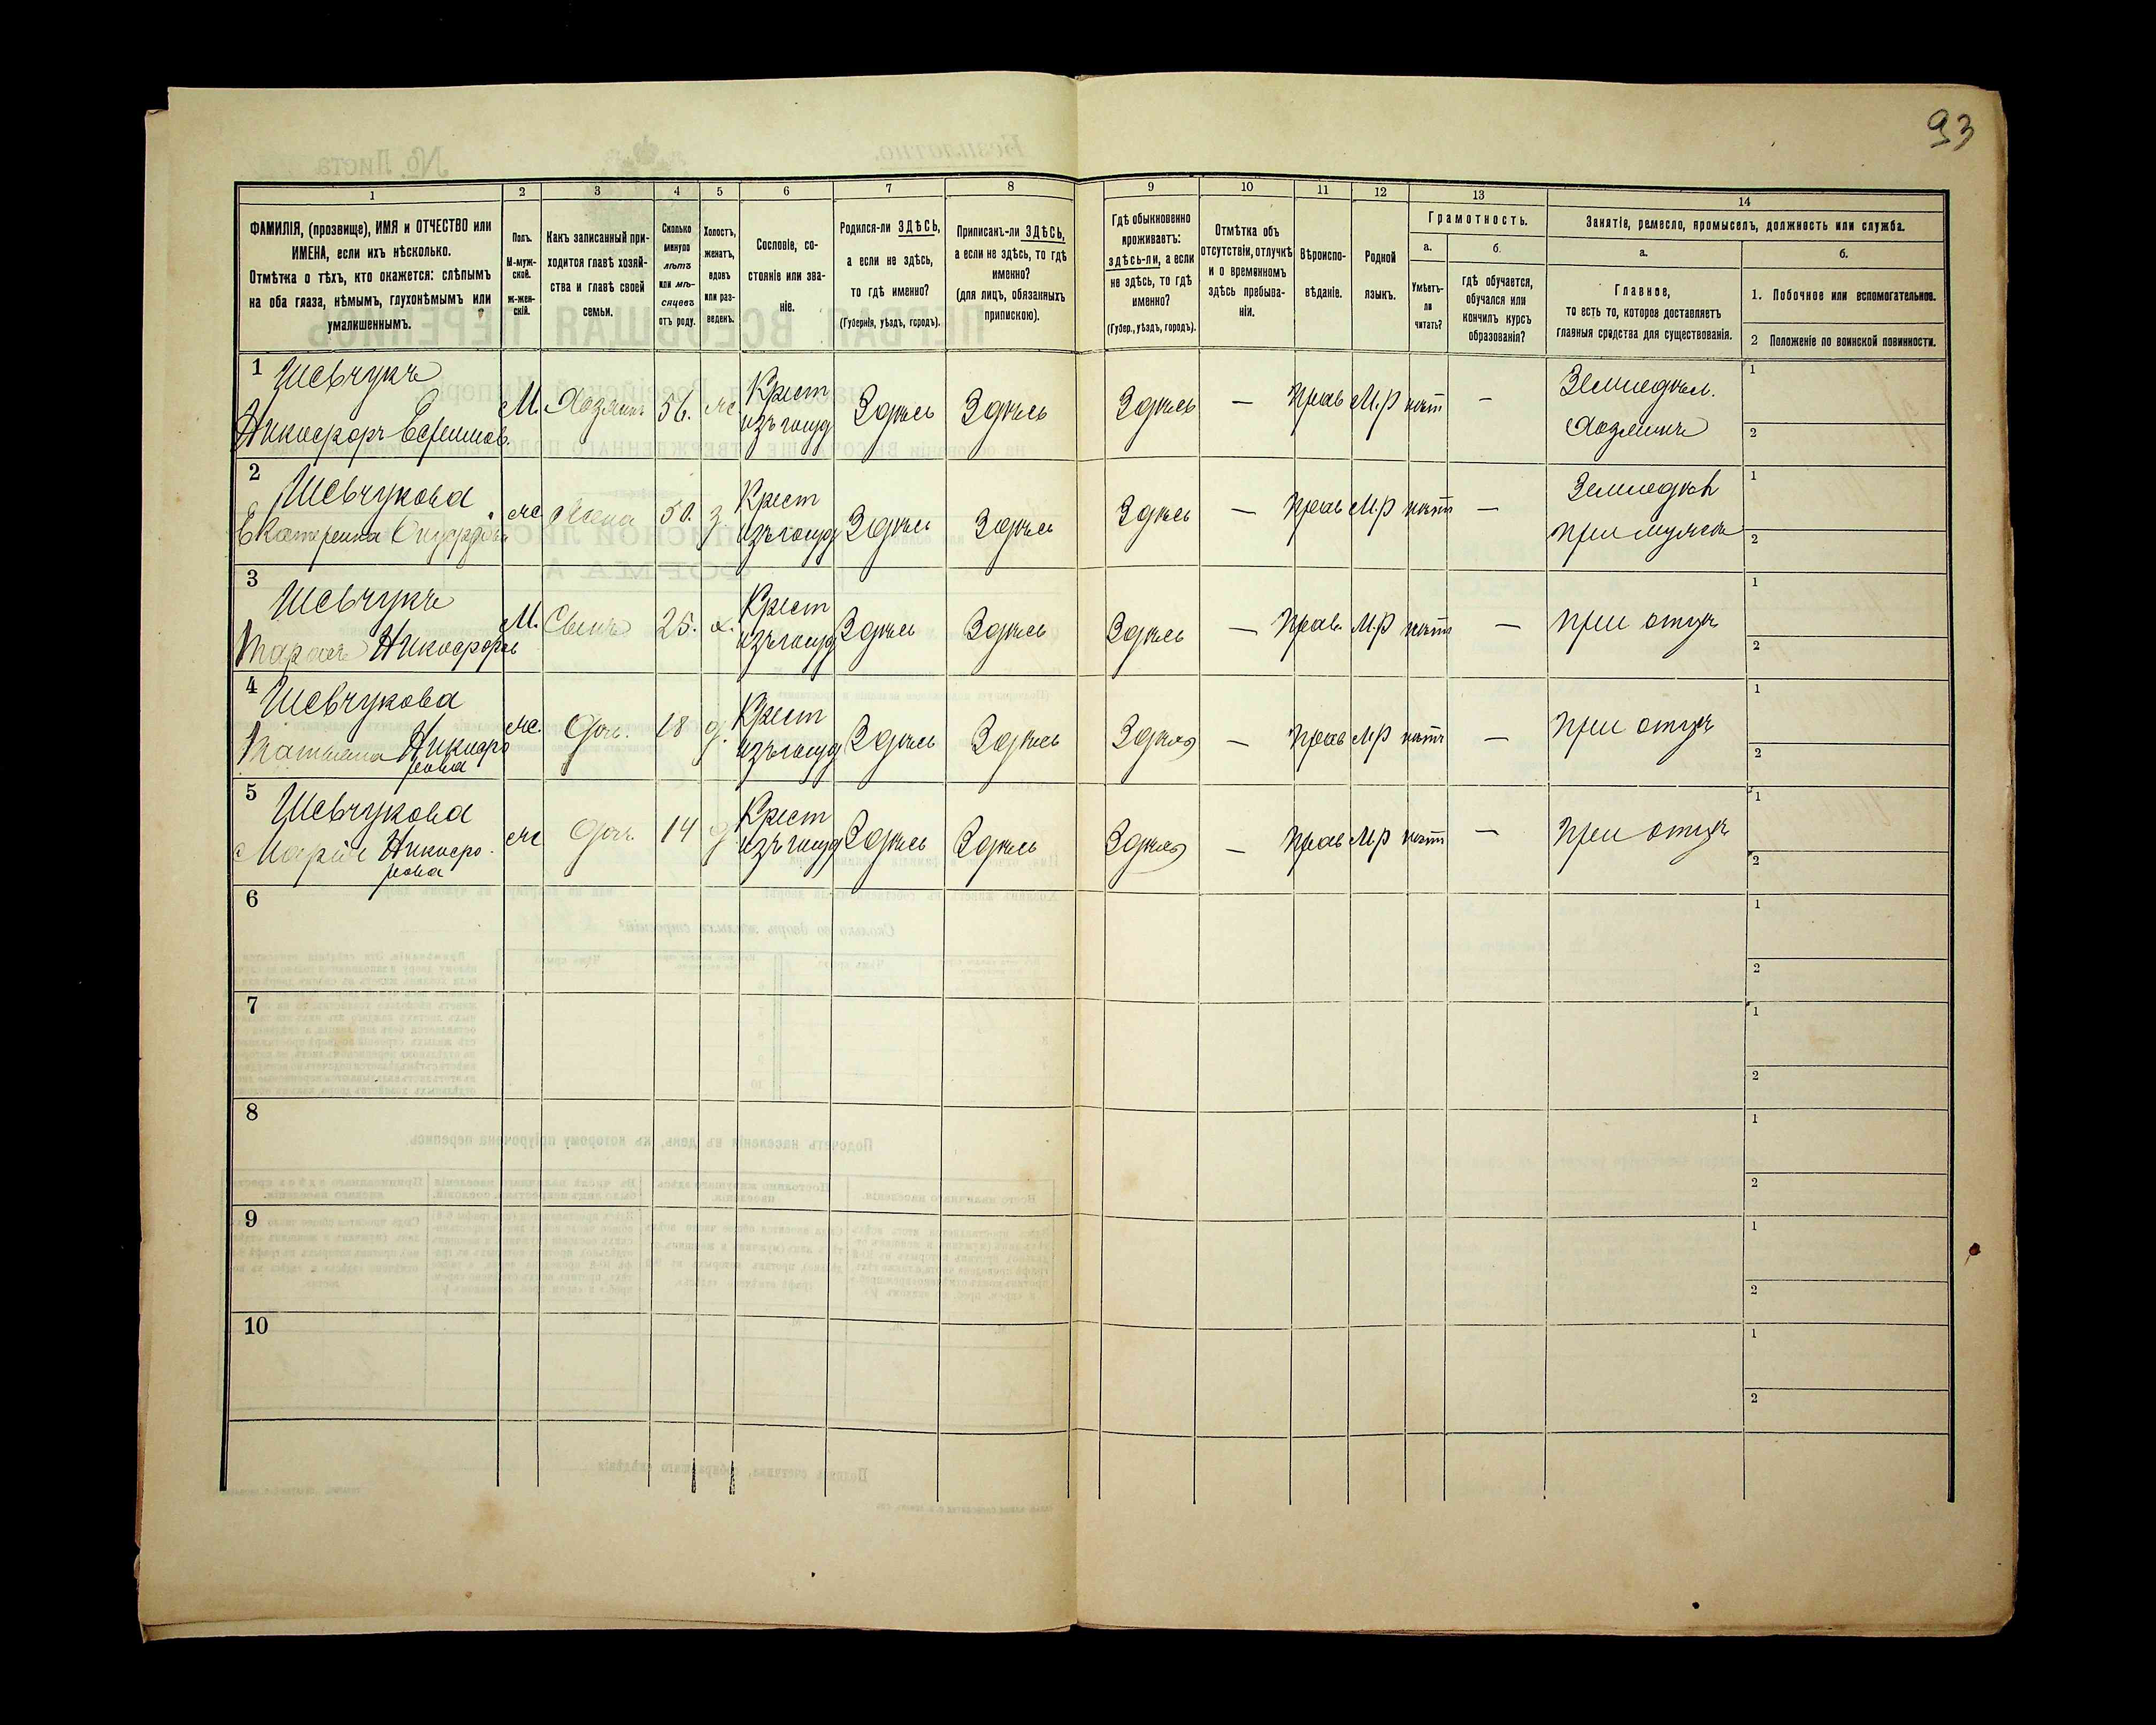 93
1 2 3 4 5 6 7 8 9 10 11 12 13 14
ФАМИЛІЯ, (прозвище), ИМЯ и ОТЧЕСТВО или
ИМЕНА, если ихъ нѣсколько.
Отмѣтка о тѣхъ, кто окажется: слѣпымъ
на оба глаза, нѣмымъ, глухонѣмымъ или
умалишеннымъ.
Полъ.
М-муж-
ской.
Ж-жен-
скій.
Какъ записанный при-
ходится главѣ хозяй-
ства и главѣ своей
семьи.
Сколько
минуло
лѣтъ
или мѣ-
сяцевъ
отъ роду.
Холостъ,
женатъ,
вдовъ
или раз-
веденъ.
Сословіе, со-
стояніе или зва-
ніе.
Родился-ли ЗДѢСЬ,
а если не здѣсь,
то гдѣ именно?
(Губернія, уѣздъ, городъ).
Приписанъ-ли ЗДѢСЬ,
а если не здѣсь, то гдѣ
именно?
(для лицъ, обязанныхъ
припискою).
Гдѣ обыкновенно
проживаетъ:
здѣсь-ли, а если
не здѣсь, то гдѣ
именно?
(Губер., уѣздъ, городъ).
Отмѣтка объ
отсутствіи, отлучкѣ
и о временномъ
здѣсь пребыва-
ніи.
Вѣроиспо-
вѣданіе.
Родной
языкъ.
Грамотность.
а.
Умѣетъ-
ли
читать?
б.
гдѣ обучается,
обучался или
кончилъ курсъ
образованія?
Занятіе, ремесло, промыселъ, должность или служба.
а.
Главное,
то есть то, которое доставляетъ
главныя средства для существованія.
б.
1. Побочное или вспомогательное.
2 Положеніе по воинской повинности.
1 Шевчукъ
Никифоръ Ефимов. М. Хозяинъ 56. ж. Крест изъ госуд Здѣсь Здѣсь Здѣсь — Прав М.Р нѣт — Земледѣл. Хозяинъ 1 2
2 Шевчукова
Екатерина ж Жена 50. з. Крест изъ госуд Здѣсь Здѣсь Здѣсь — Прав М.Р нѣт — Земледѣл при мужѣ 1 2
3 Шевчукъ
Тарасъ Никифоров М. Сынъ 25. х. Крест изъ госуд Здѣсь Здѣсь Здѣсь — Прав. М.Р нѣт — при отцѣ 1 2
4 Шевчукова
Татьяна Никифо
рова ж. Доч. 18 д. Крест изъ госуд Здѣсь Здѣсь Здѣсь — Прав М.Р нѣт — при отцѣ 1 2
5 Шевчукова
Марія Никифо
рова ж Доч. 14 д Крест изъ госуд Здѣсь Здѣсь Здѣсь — Прав М.Р нѣт — при отцѣ 1 2
6 1 2
7 1 2
8 1 2
9 1 2
10 1 2